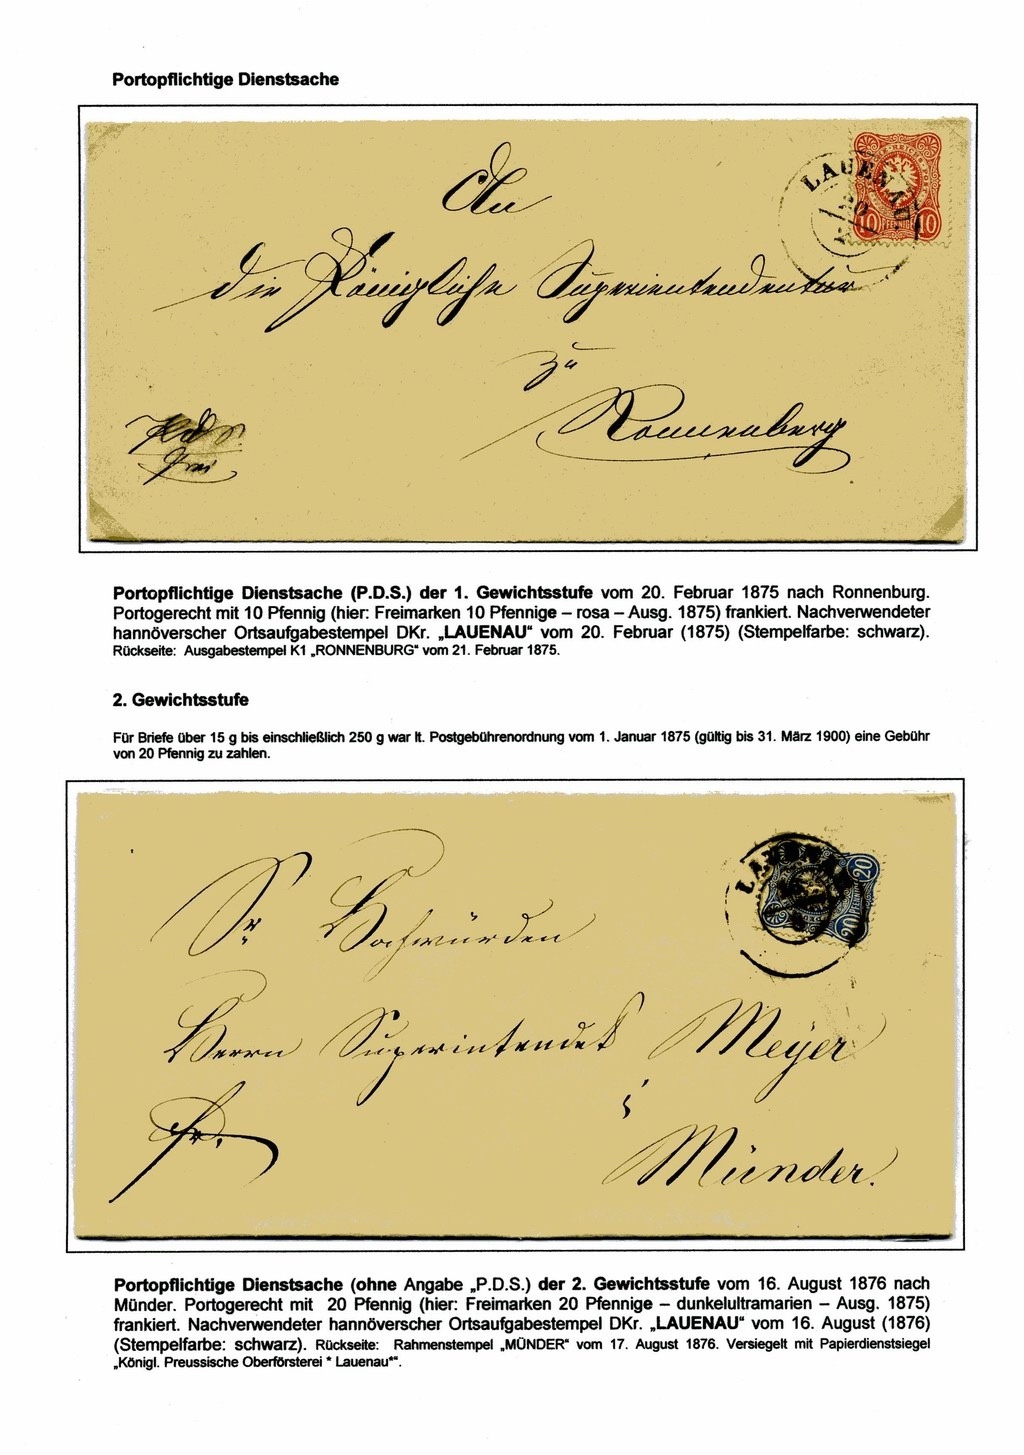 Portopflichtige Dienstsache
LAUENAU
20
10 PFENNIG 10
An
die Königliche Superientendentur
zu
Ronnenberg
frei
Portopflichtige Dienstsache (P.D.S.) der 1. Gewichtsstufe vom 20. Februar 1875 nach Ronnenburg.
Portogerecht mit 10 Pfennig (hier: Freimarken 10 Pfennige – rosa – Ausg. 1875) frankiert. Nachverwendeter
hannöverscher Ortsaufgabestempel DKr. „LAUENAU“ vom 20. Februar (1875) (Stempelfarbe: schwarz).
Rückseite: Ausgabestempel K1 „RONNENBURG“ vom 21. Februar 1875.
2. Gewichtsstufe
Für Briefe über 15 g bis einschließlich 250 g war lt. Postgebührenordnung vom 1. Januar 1875 (gültig bis 31. März 1900) eine Gebühr
von 20 Pfennig zu zahlen.
20
20
Sr. Hochwürden
Herrn Superintendet Meyer
i
Münder.
fr.
Portopflichtige Dienstsache (ohne Angabe „P.D.S.) der 2. Gewichtsstufe vom 16. August 1876 nach
Münder. Portogerecht mit 20 Pfennig (hier: Freimarken 20 Pfennige – dunkelultramarien – Ausg. 1875)
frankiert. Nachverwendeter hannöverscher Ortsaufgabestempel DKr. „LAUENAU“ vom 16. August (1876)
(Stempelfarbe: schwarz). Rückseite: Rahmenstempel „MÜNDER“ vom 17. August 1876. Versiegelt mit Papierdienstsiegel
„Königl. Preussische Oberförsterei * Lauenau*“.